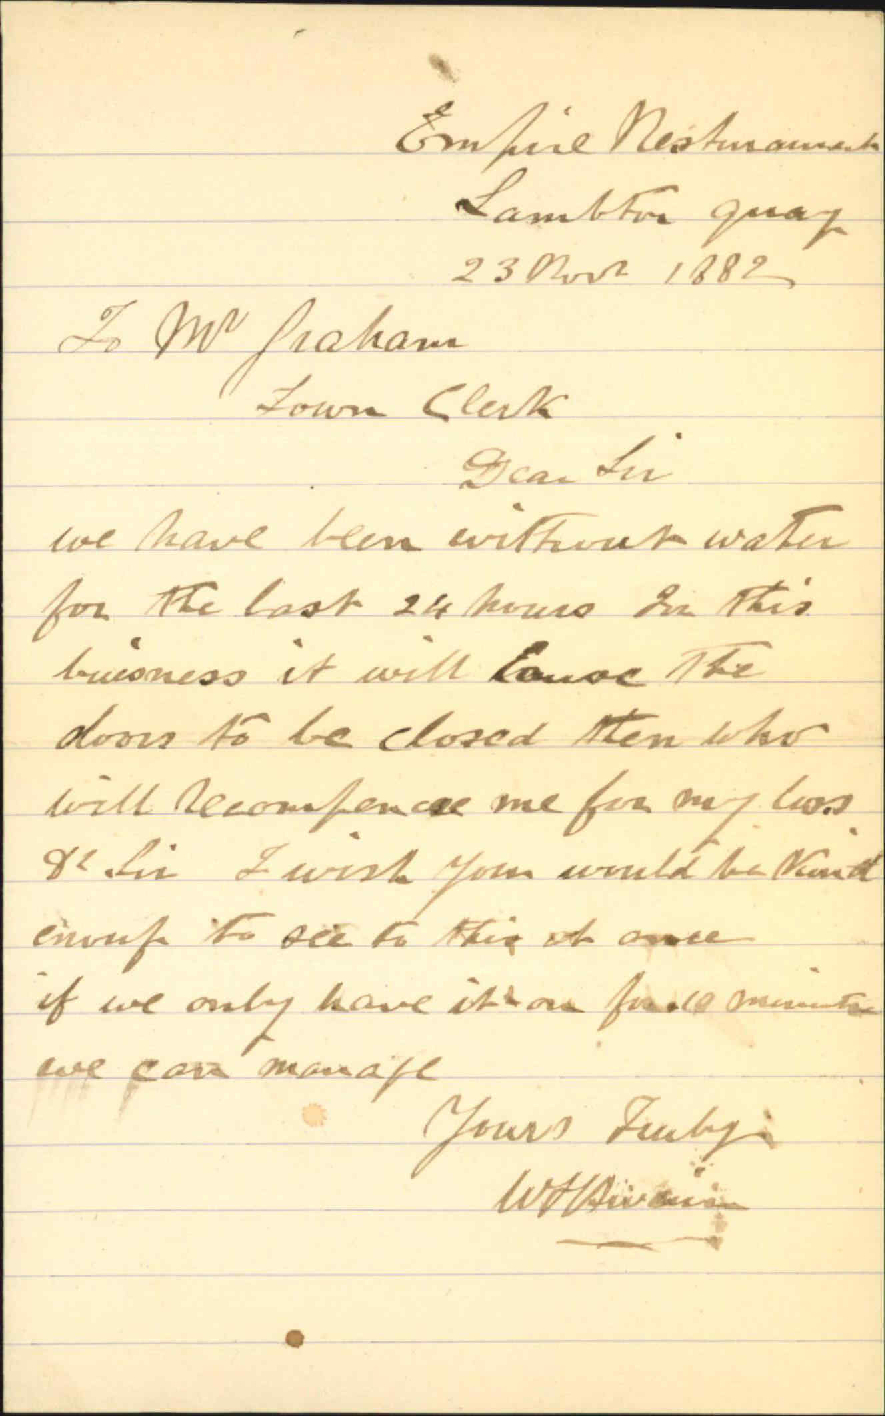 Empire Resturaunt
Lambton quay
23 Novr 1882
To Mr Graham
Town Clerk
Dear Sir
we have been without water
for the last 24 hours In this
buisness it will Cause the
doors to be closed then who
will recompence me for my loss
Dr Sir I wish you would be kind
enough to see to this at once
if we only have it on for 10 minutes
we can manage
Yours Truly